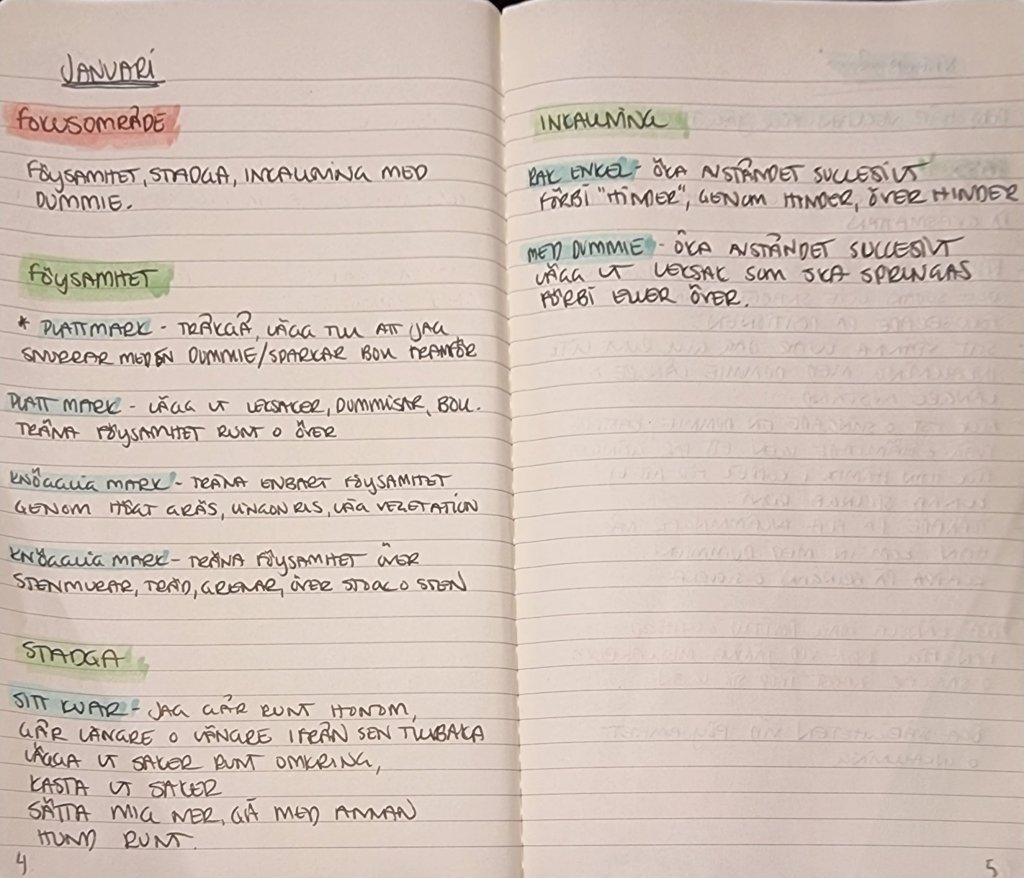 JANUARI
FOKUSOMRÅDE
FÖLJSAMHET, STADGA, INKALLNING MED
DUMMIE.
FÖLJSAMHET
* PLATTMARK - TRÄKGÅ, LÄGG TILL ATT JAG
SNURRAR MED EN DUMMIE/SPARKAR BOLL FRAMFÖR
PLATT MARK - LÄGG UT LEKSAKER, DUMMISAR, BOLL.
TRÄNA FÖLJSAMHET RUNT O ÖVER
KNÖGGLIG MARK - TRÄNA ENBART FÖLJSAMHET
GENOM HÖGT GRÄS, LINGONRIS, LÅG VEZETATION
KNÖGGLIG MARK - TRÄNA FÖLJSAMHET ÖVER
STENMURAR, TRÄD, GRENAR, ÖVER STOCK O STEN
STADGA
SITT KVAR - JAG GÅR RUNT HONOM,
GÅR LÄNGRE O LÄNGRE IFRÅN SEN TILLBAKA
LÄGGA UT SAKER RUNT OMKRING,
KASTA UT SAKER
SÄTTA MIG NER, GÅ MED ANNAN
HUND RUNT.
4
INKALLNING
RAK ENKEL - ÖKA AVSTÅNDET SUCCESIVT
FÖRBI "HINDER", GENOM HINDER, ÖVER HINDER
MED DUMMIE - ÖKA AVSTÅNDET SUCCESIVT
LÄGG UT LEKSAK SOM SKA SPRINGAS
FÖRBI ELLER ÖVER.
5